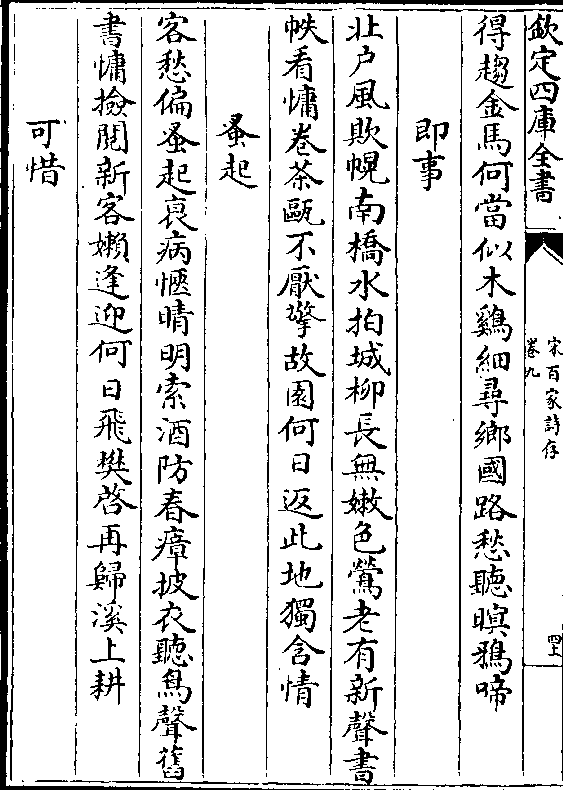 欽定四庫全書
宋百家詩存
卷九
四上
得趨金馬何當似木鷄細尋鄉國路愁聽暝鴉啼
即事
北戶風欺幌南橋水拍城柳長無嫩色鶯老有新聲書
帙看慵卷茶甌不厭擎故園何日返此地獨含情
蚤起
客愁偏蚤起衰病愜晴明索酒防春瘴披衣聽鳥聲舊
書慵撿閱新客嬾逢迎何日飛樊啓再歸溪上耕
可惜